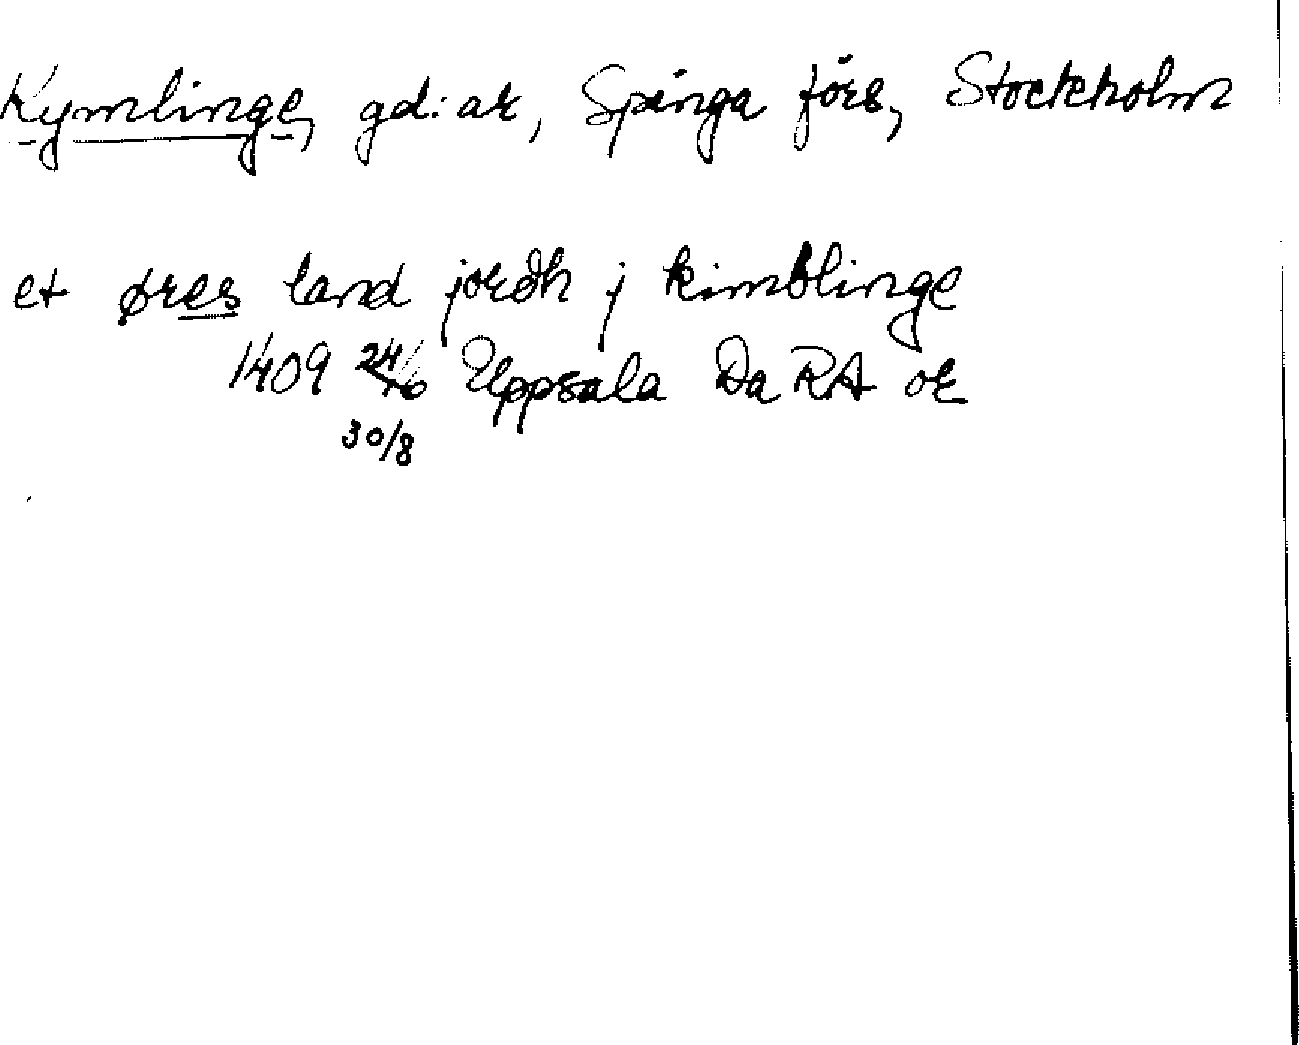 Kymlinge, gd:ar, Spånga förs, Stockholm
et øres land jordh j kimblinge
1409 24/6 Uppsala Da RA or
30/8